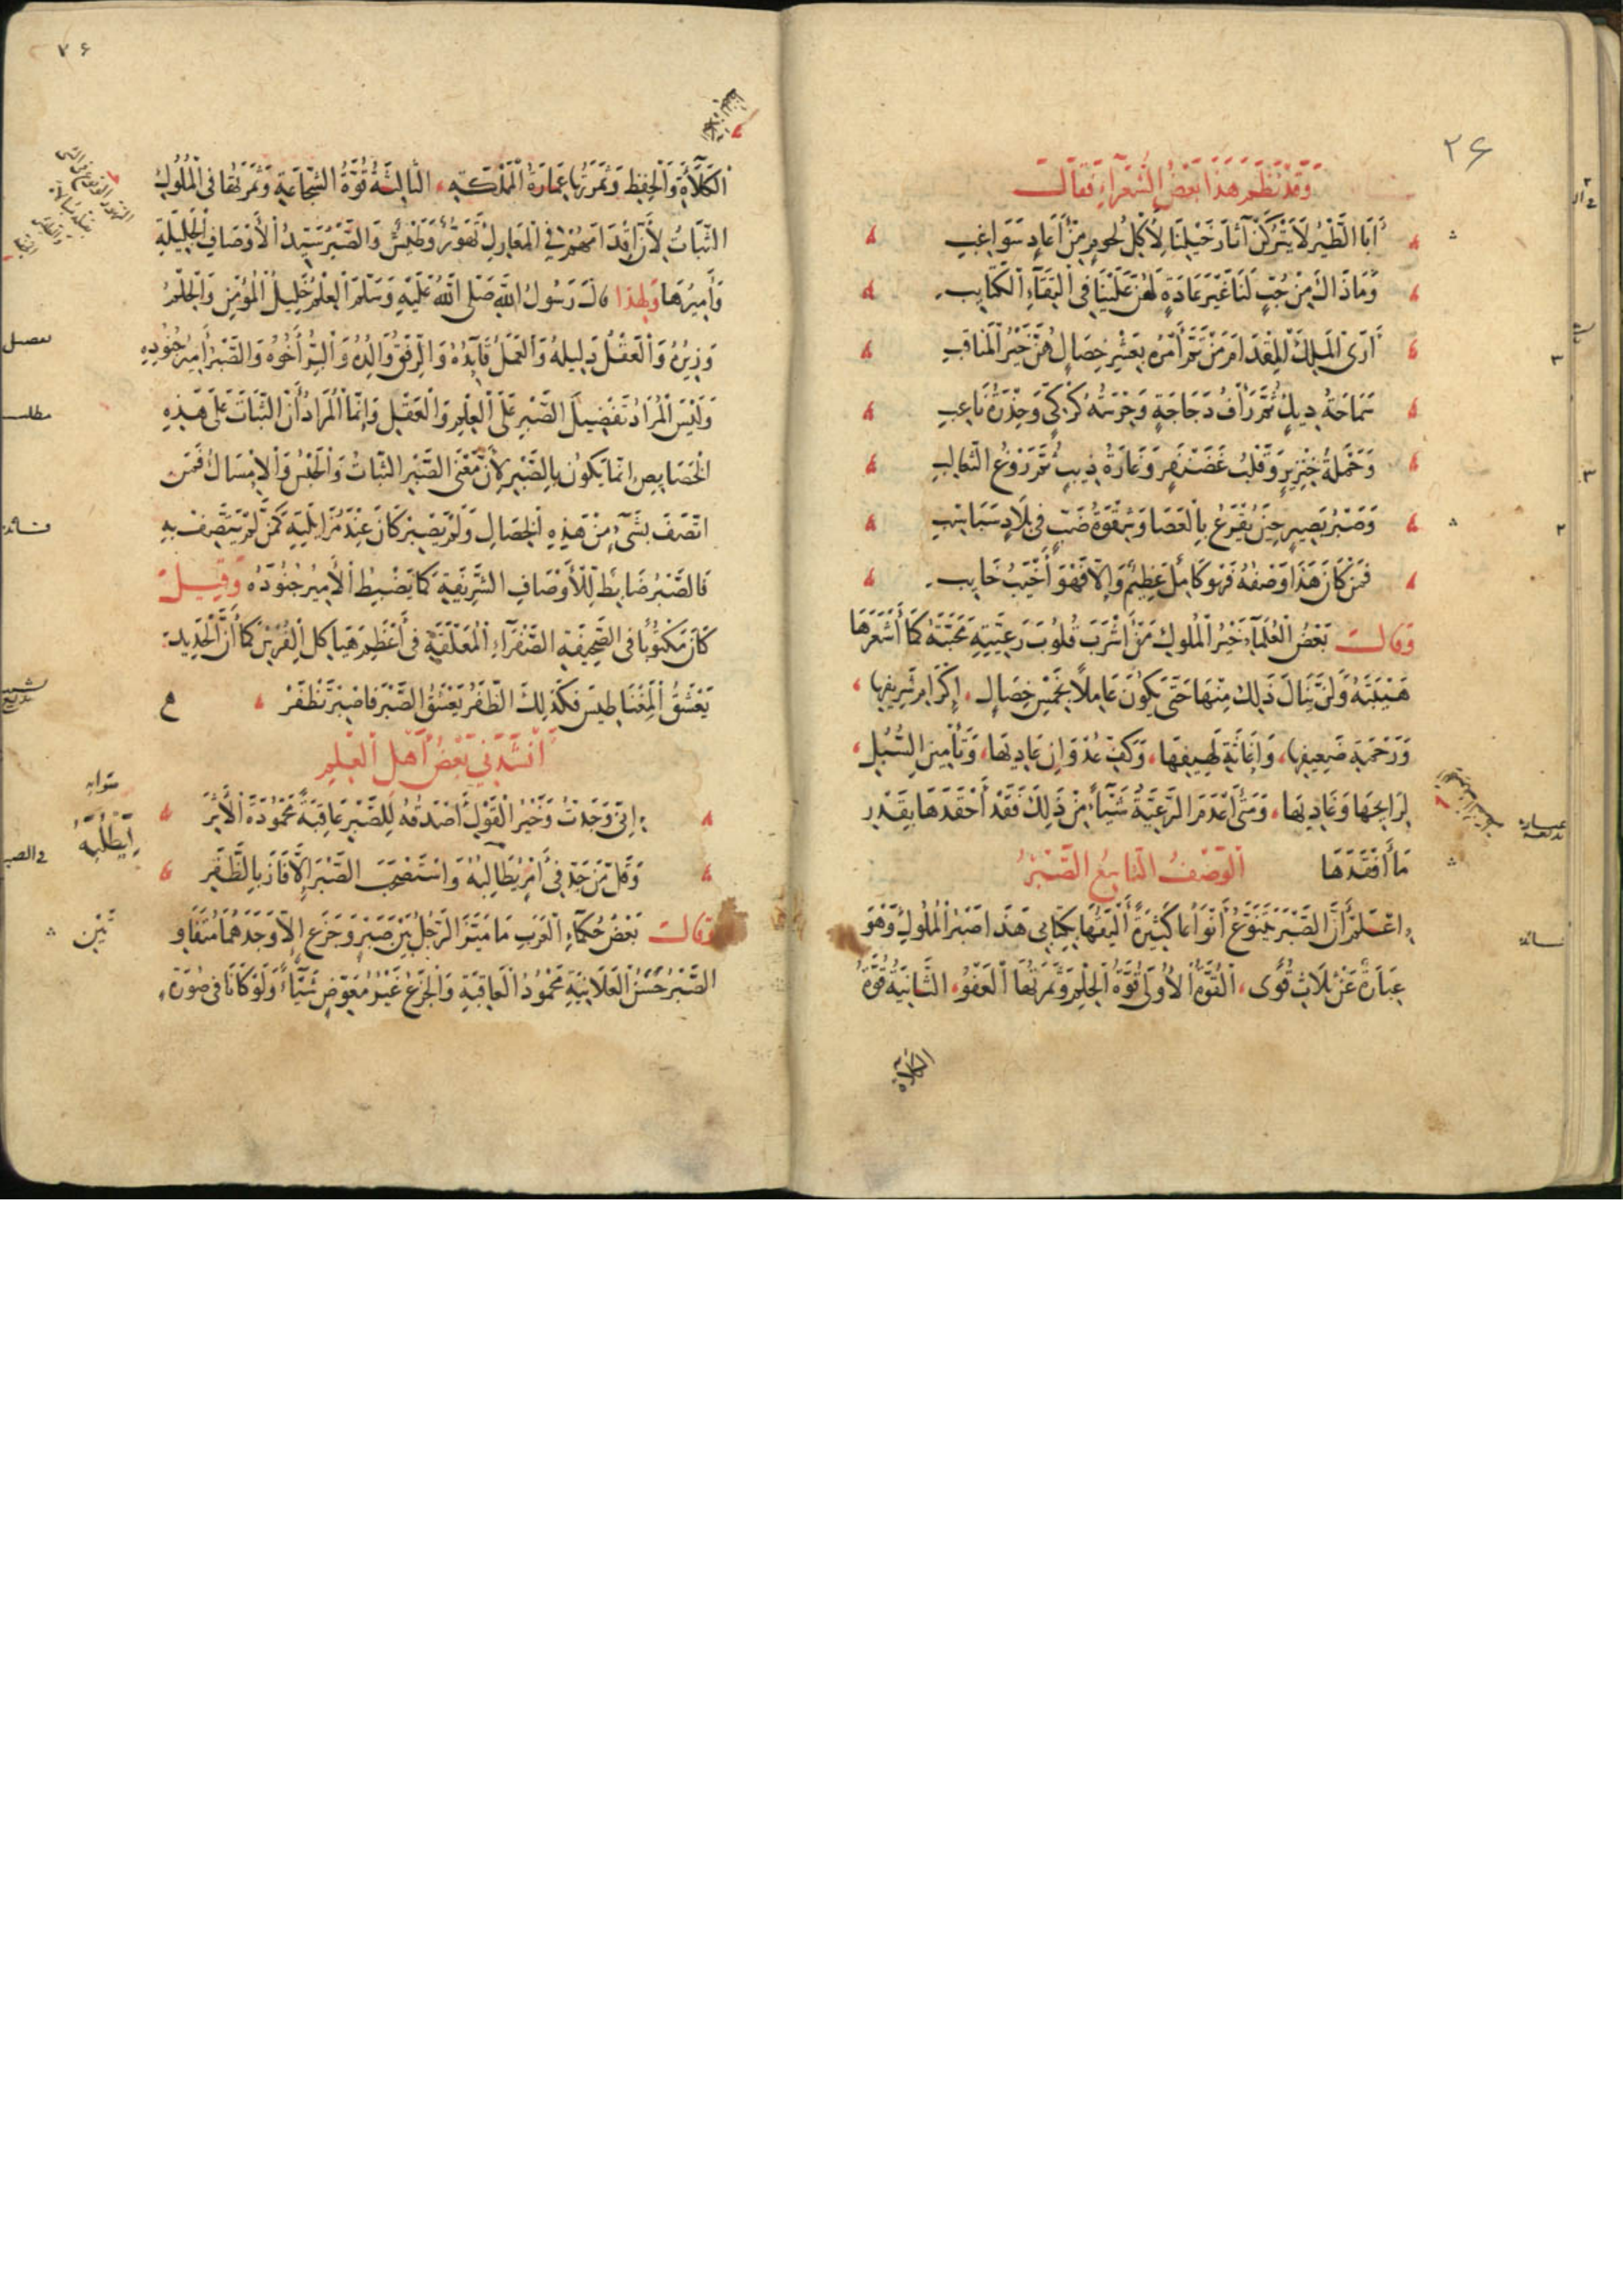 ٢۶
وَقَدْ نَظَمَ هَذَا بَعْضُ الشُّعَرَاءِ فَقَالَ
أَبَا الطَّيْرُ لَا يَتْرُكْنَ آثَارَ خَيْلِنَا لِأَكْلِ لُحُومٍ مِنْ أَعَادٍ سَوَاغِبِ
وَمَا ذَاكَ مِنْ حُبٍّ لَنَا غَيْرَ عَادَةٍ لَهُنَّ عَلَيْنَا فِي الْتِقَاءِ الْكَتَايِبِ
أَرَى الْمَلِكَ الْمِقْدَامَ مَنْ تَمَّ أَمْرُهُ بِعَشْرِ خِصَالٍ هُنَّ خَيْرُ الْمَنَاقِبِ
سَمَاحَةُ دِيكٍ ثُمَّ رَأْفُ دَجَاجَةٍ وَحَرْسَةُ كُرْكِيٍّ وَحِذْرَةُ نَاعِبِ
وَحَمْلَةُ خِنْزِيرٍ وَقَلْبُ غَضَنْفَرٍ وَغَارَةُ ذِيبٍ ثُمَّ رَوْغُ الثَّعَالِبِ
وَصَبْرُ بَصِيرٍ حِينَ يُقْرَعُ بِالْعَصَا وَشِقْوَةُ ضَبٍّ فِي بِلَادٍ سَبَاسِبِ
فَمَنْ كَانَ هَذَا وَصْفُهُ فَهُوَ كَامِلٌ عَظِيمٌ وَإِلَّا فَهْوَ أَخْيَبُ خَايِبِ
وَقَالَ بَعْضُ الْعُلَمَاءِ خَيْرُ الْمُلُوكِ مَنْ أَشْرَبَ قُلُوبَ رَعِيَّتِهِ مَحَبَّتَهُ كَمَا أَشْعَرَهَا
هَيْبَتَهُ وَلَنْ يَنَالَ ذَلِكَ مِنْهَا حَتَّى يَكُونَ عَامِلًا بِخَمْسِ خِصَالٍ، إِكْرَامِ شَرِيفِهَا،
وَرَحْمَةِ ضَعِيفِهَا، وَإِغَاثَةِ لَهِيفِهَا، وَكَفِّ عُدْوَانِ عَادِيهَا، وَتَأْمِينِ السُّبُلِ،
لِرَايِحِهَا وَغَادِيهَا، وَمَتَى أَعْدَمَ الرَّعِيَّةَ شَيْئًا مِنْ ذَلِكَ فَقَدْ أَحْقَدَهَا بِقَدْرِ
مَا أَفْقَدَهَا الْوَصْفُ التَّاسِعُ الصَّبْرُ
اعْلَمْ أَنَّ الصَّبْرَ يَتَنَوَّعُ أَنْوَاعًا كَثِيرَةً أَلْيَقُهَا بِكِتَابِي هَذَا صَبْرُ الْمُلُوكِ وَهُوَ
عِبَارَةٌ عَنْ ثَلَاثِ قُوًى، الْقُوَّةُ الْأُولَى قُوَّةُ الْحِلْمِ وَثَمَرَتُهَا الْعَفْوُ، الثَّانِيَةُ قُوَّةُ
الكلاءة
٧۶
الْكَلَاءَةِ وَالْحِفْظِ وَثَمَرَتُهَا عِمَارَةُ الْمَمْلَكَةِ، الثَّالِثَةُ قُوَّةُ الشَّجَاعَةِ وَثَمَرَتُهَا فِي الْمُلُوكِ
الثَّبَاتُ لِأَنَّ إِقْدَامَهُمْ فِي الْمَعَارِكِ تَهَوُّرٌ وَطَيْشٌ وَالصَّبْرُ سَيِّدُ الْأَوْصَافِ الْجَلِيلَةِ
وَأَمِيرُهَا وَلِهَذَا قَالَ رَسُولُ اللَّهِ صَلَّى اللَّهُ عَلَيْهِ وَسَلَّمَ الْعِلْمُ خَلِيلُ الْمُؤْمِنِ وَالْحِلْمُ
وَزِيرُهُ وَالْعَقْلُ دَلِيلُهُ وَالْعَمَلُ قَائِدُهُ وَالرِّفْقُ وَالِدُهُ وَالْبِرُّ أَخُوهُ وَالصَّبْرُ أَمِيرُ جُنُودِهِ
وَلَيْسَ الْمُرَادُ تَفْضِيلَ الصَّبْرِ عَلَى الْعِلْمِ وَالْعَقْلِ وَإِنَّمَا الْمُرَادُ أَنَّ الثَّبَاتَ عَلَى هَذِهِ
مطلب
الْخَصَايِصِ إِنَّمَا يَكُونُ بِالصَّبْرِ لِأَنَّ مَعْنَى الصَّبْرِ الثَّبَاتُ وَالْحَبْسُ وَالْإِمْسَاكُ فَمَنِ
اتَّصَفَ بِشَيْءٍ مِنْ هَذِهِ الْخِصَالِ وَلَمْ يَصْبِرْ كَانَ عِنْدَ مُزَايَلَتِهِ كَمَنْ لَمْ يَتَّصِفْ بِهِ
فَالصَّبْرُ ضَابِطٌ لِلْأَوْصَافِ الشَّرِيفَةِ كَمَا يَضْبِطُ الْأَمِيرُ جُنُودَهُ وَقِيلَ
كَانَ مَكْتُوبًا فِي الصَّحِيفَةِ الصَّفْرَاءِ الْمُعَلَّقَةِ فِي أَعْظَمِ هَيَاكِلِ الْفُرْسِ كَمَا أَنَّ الْحَدِيدَ
يَعْشَقُ الْمِغْنَاطِيسَ فَكَذَلِكَ الظَّفَرُ يَعْشَقُ الصَّبْرَ فَاصْبِرْ تَظْفَرْ
أَنْشَدَنِي بَعْضُ أَهْلِ الْعِلْمِ
إِنِّي وَجَدْتُ وَخَيْرُ الْقَوْلِ أَصْدَقُهُ لِلصَّبْرِ عَاقِبَةً مَحْمُودَةَ الْأَثَرِ
وَقَلَّ مَنْ جَدَّ فِي أَمْرٍ يُطَالِبُهُ وَاسْتَصْحَبَ الصَّبْرَ إِلَّا فَازَ بِالظَّفَرِ
صوابه
يَطْلُبُهُ
وَقَالَ بَعْضُ حُكَمَاءِ الْعَرَبِ مَا مَيَّزَ الرَّجُلُ بَيْنَ صَبْرٍ وَجَزَعٍ إِلَّا وَجَدَهُمَا مُتَفَاوِ
تَيْنِ
الصَّبْرُ حَسَنُ الْعَلَانِيَةِ مَحْمُودُ الْعَاقِبَةِ وَالْجَزَعُ غَيْرُ مُعَوِّضٍ شَيْئًا وَلَوْ كَانَا فِي صُورَةِ